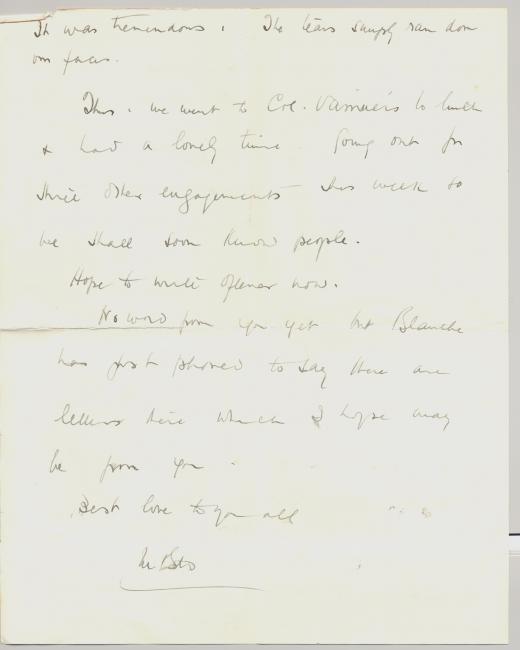 It was tremendous. The tears simply ran down
our faces.
Thurs. we went to Col. to lunch
& had a lovely time. Going out for
three other engagements this week so
we shall soon know people.
Hope to write oftener now.
No word from you yet but Blanche
has just phoned to say there are
letters here which I hope may
be from you.
Best love to you all